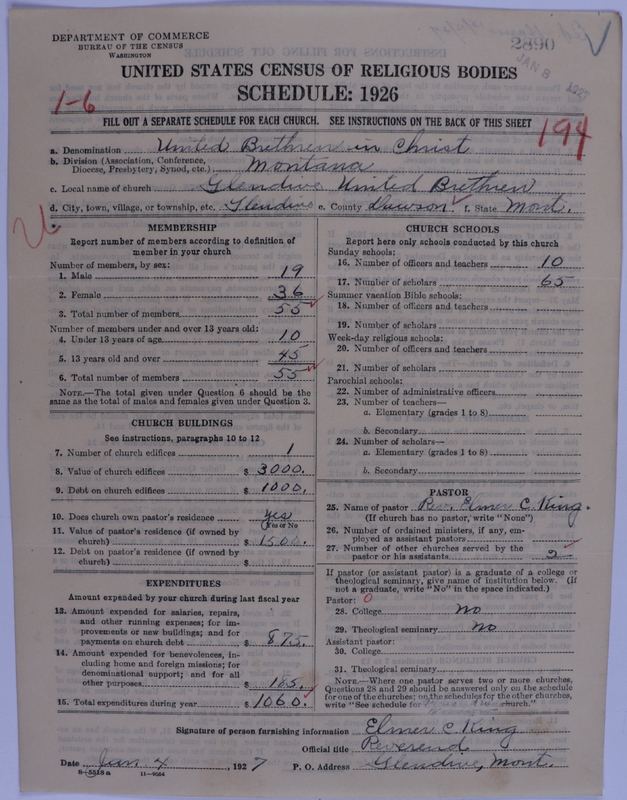 DEPARTMENT OF COMMERCE
BUREAU OF THE CENSUS
WASHINGTON
2890
JAN 8 1927
UNITED STATES CENSUS OF RELIGIOUS BODIES
SCHEDULE: 1926
1-6
FILL OUT A SEPARATE SCHEDULE FOR EACH CHURCH. SEE INSTRUCTIONS ON THE BACK OF THIS SHEET
194
a. Denomination United Brethren in Christ
b. Division (Association, Conference, Diocese, Presbytery, Synod, etc.) Montana
c. Local name of church Glendive United Brethren
d. City, town, village, or township, etc. Glendive e. County Dawson f. State Mont.
MEMBERSHIP
Report number of members according to definition of
member in your church
Number of members, by sex:
1. Male 19
2. Female 36
3. Total number of members 55
Number of members under and over 13 years old:
4. Under 13 years of age 10
5. 13 years old and over 45
6. Total number of members 55
NOTE.—The total given under Question 6 should be
same as the total of males and females given under Question 3.
CHURCH BUILDINGS
See instructions, paragraphs 10 to 12
7. Number of church edifices 1
8. Value of church edifices $ 3000.
9. Debt on church edifices $ 1000.
10. Does church own pastor's residence yes
Yes or No
11. Value of pastor's residence (if owned by
church) $ 1500.
12. Debt on pastor's residence (if owned by
church) $
EXPENDITURES
Amount expended by your church during last fiscal year
13. Amount expended for salaries, repairs,
and other running expenses; for im-
provements or new buildings; and for
payments on church debt $ 875.
14. Amount expended for benevolences, in-
cluding home and foreign missions; for
denominational support; and for all
other purposes $ 185.
15. Total expenditures during year $ 1060.
CHURCH SCHOOLS
Report here only schools conducted by this church
Sunday schools:
16. Number of officers and teachers 10
17. Number of scholars 65
Summer vacation Bible schools:
18. Number of officers and teachers
19. Number of scholars
Week-day religious schools:
20. Number of officers and teachers
21. Number of scholars
Parochial schools:
22. Number of administrative officers
23. Number of teachers—
a. Elementary (grades 1 to 8)
b. Secondary
24. Number of scholars—
a. Elementary (grades 1 to 8)
b. Secondary
PASTOR
25. Name of pastor Rev. Elmer C. King.
(If church has no pastor, write "None")
26. Number of ordained ministers, if any, em-
ployed as assistant pastors
27. Number of other churches served by the
pastor or his assistants 2
If pastor (or assistant pastor) is a graduate of a college or
theological seminary, give name of institution below. (If
not a graduate, write "No" in the space indicated.)
Pastor: 0
28. College no
29. Theological seminary no
Assistant pastor:
30. College
31. Theological seminary
NOTE.—Where one pastor serves two or more churches,
Questions 28 and 29 should be answered only on the schedule
for one of the churches; on the schedules for the other churches,
write "See schedule for church."
Signature of person furnishing information Elmer C King
Official title Reverend
Date Jan 4, 1927 P. O. Address Glendive, Mont.
8-5518a 11-9054